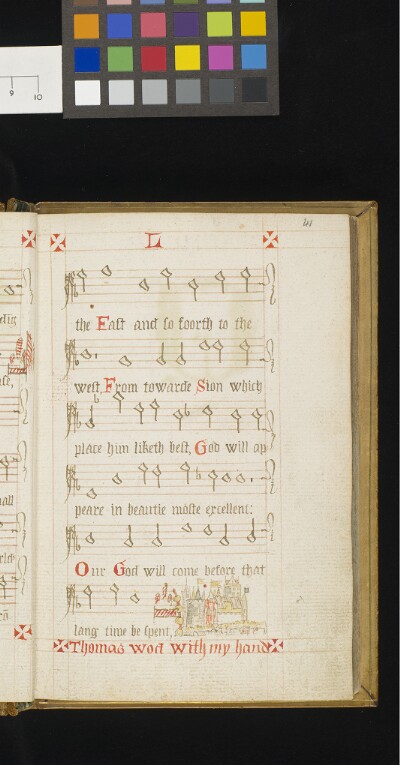 9 10
L
the East and so foorth to the
west, From towarde Sion which
place him liketh best, God will ap
peare in beautie maste excellent:
Our God will come before that
lang time be spent,
Thomas wod with my hand